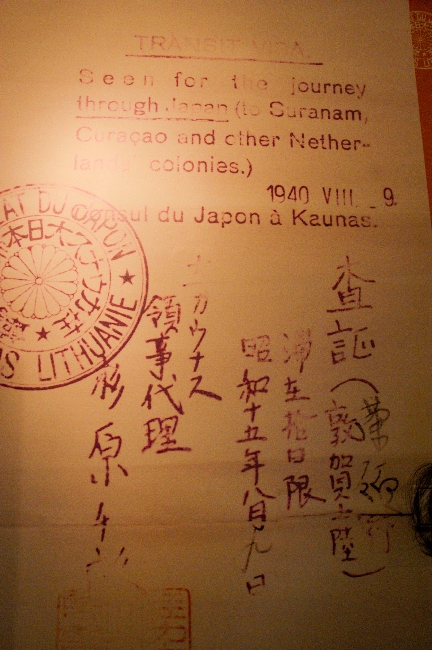 TRANSIT VISA.
Seen for the journey
through Japan (to Suranam,
Curaçao and other Nether-
lands colonies.)
1940 VIII. 9.
Consul du Japon à Kaunas.
DU JAPON
LITHUANIE
査証(敦賀上陸)
滞在拾日限
昭和十五年八月九日
在カウナス
領事代理
杉原千畝